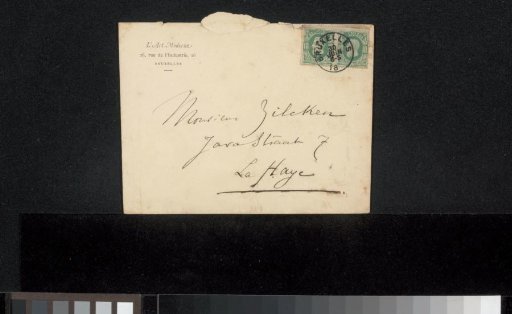 L'Art Moderne
26, rue de l'Industrie, 26
BRUXELLES
BRUXELLES
Monsieur Zilcken
Java Straat 7
La Haye